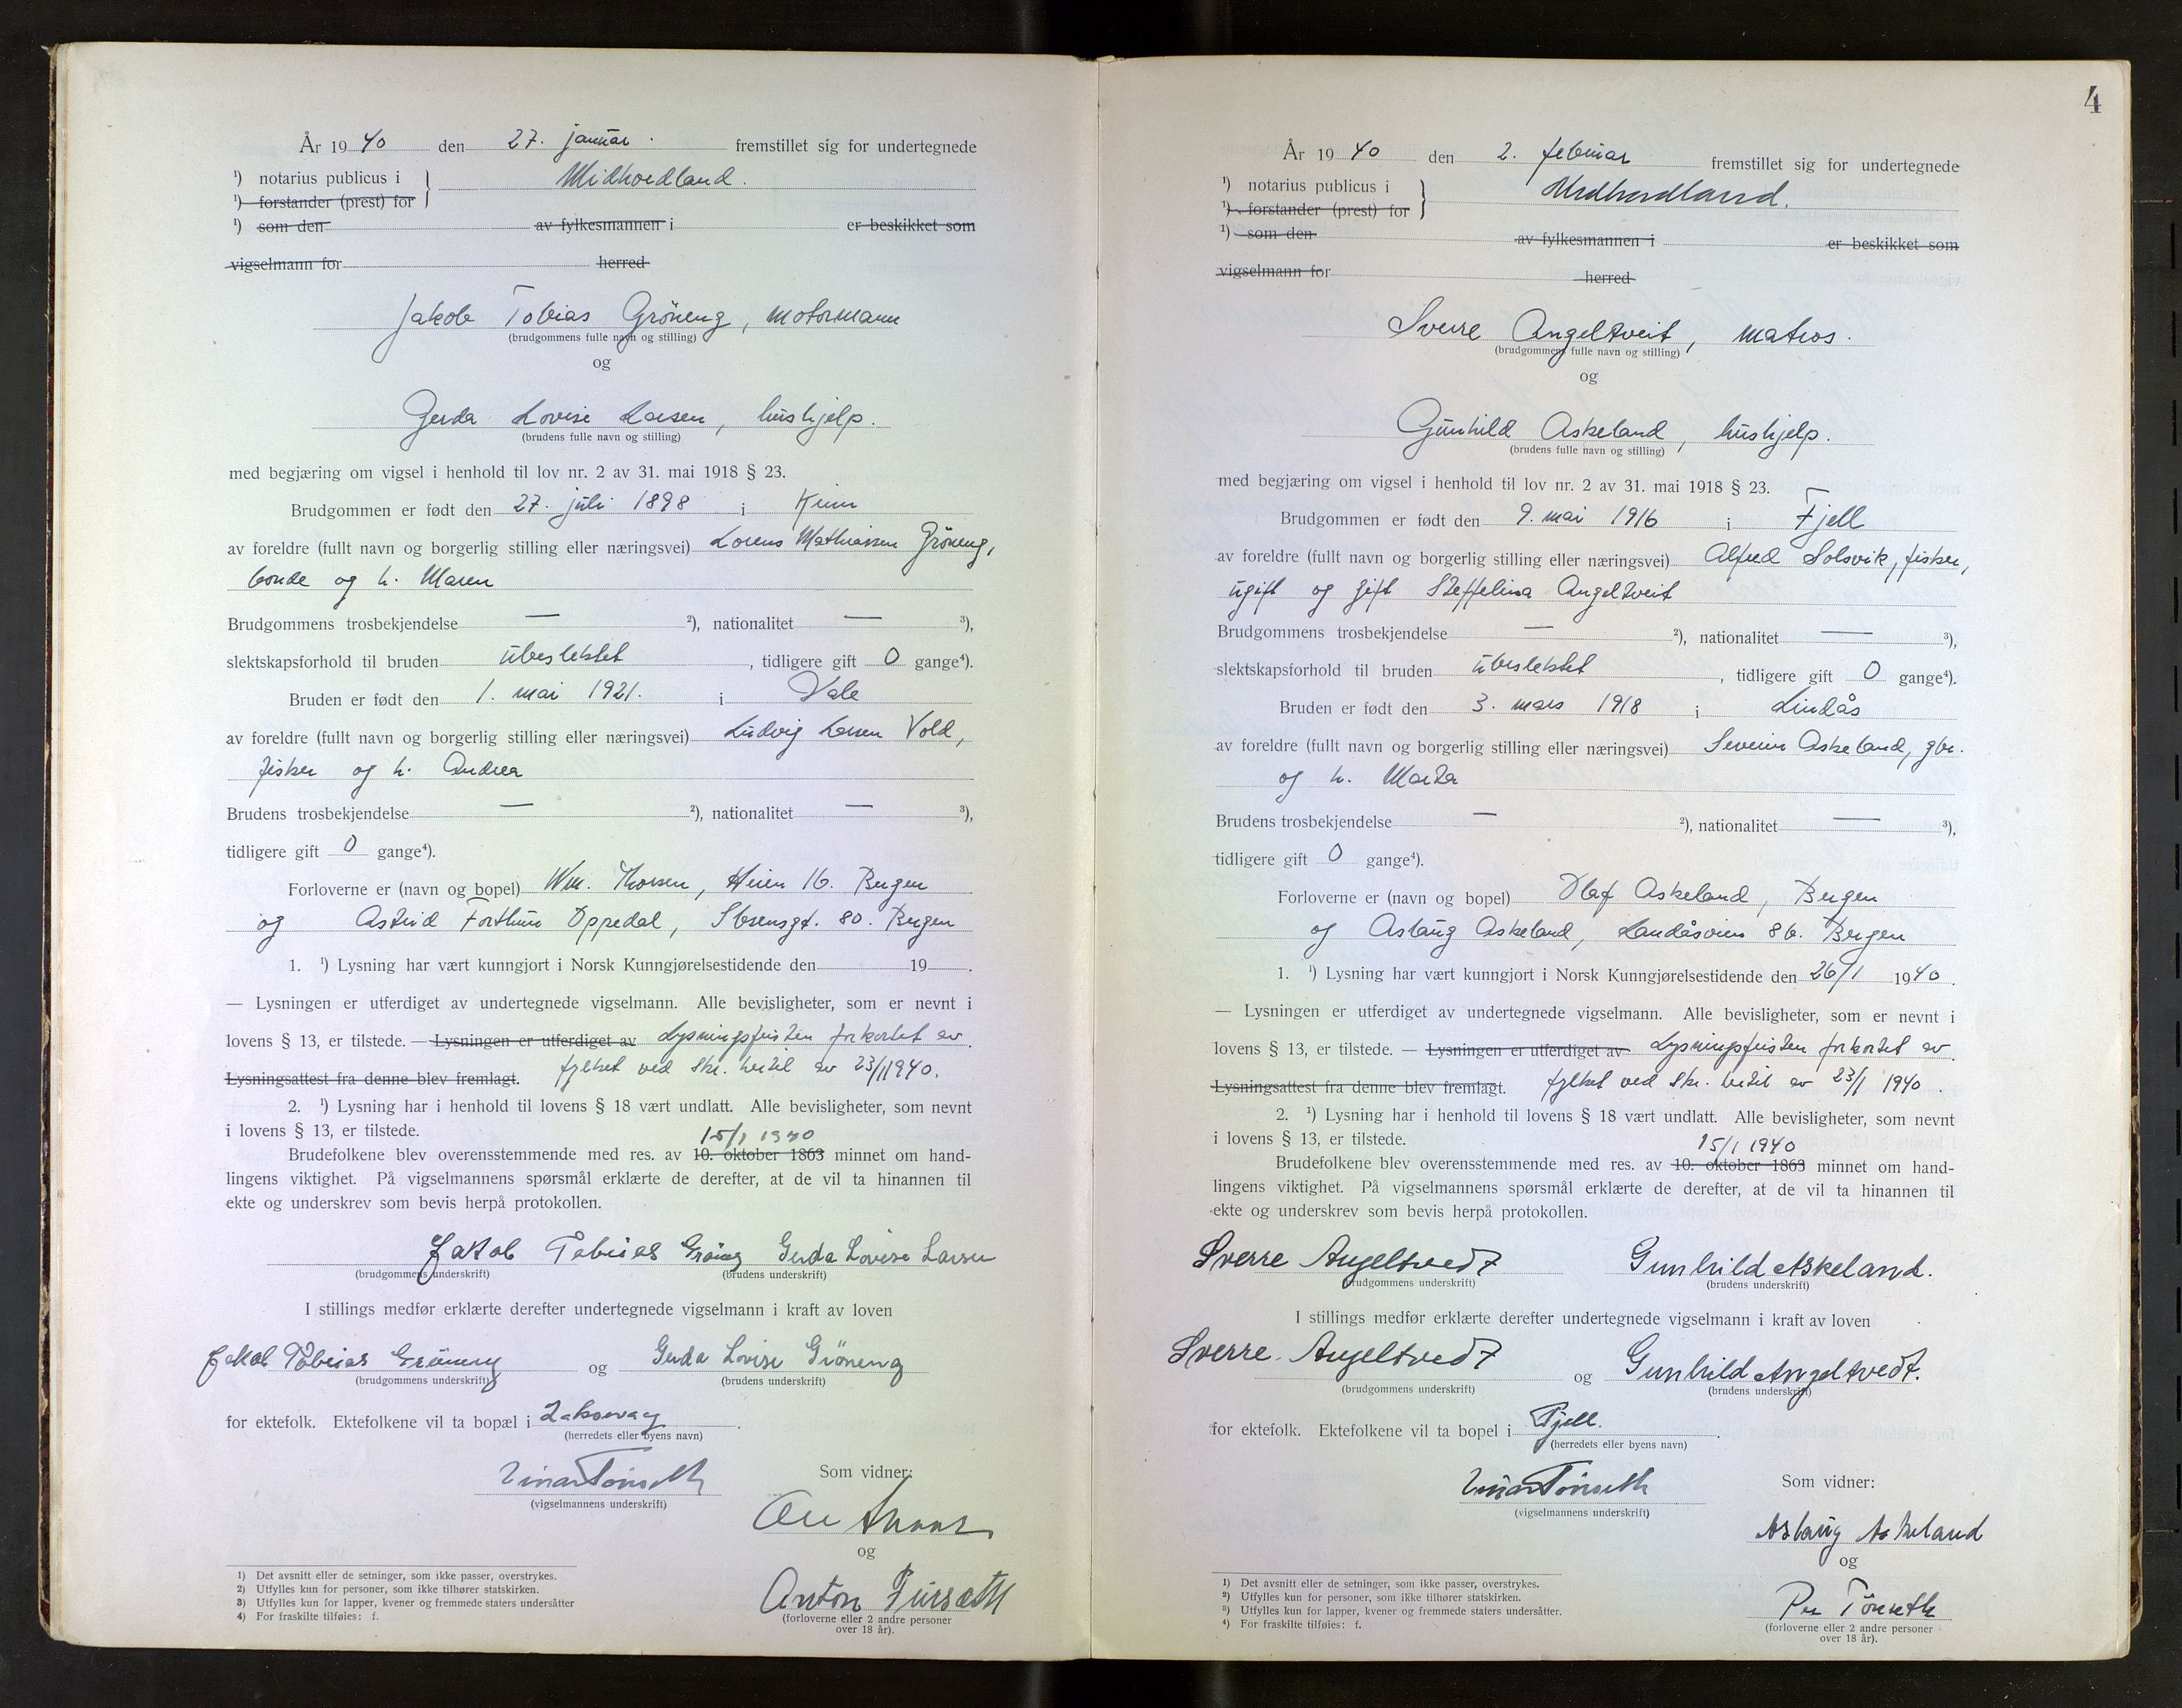 År 1940 den 27. januar. fremstillet sig for undertegnede
¹) notarius publicus i } Midhordland.
¹) forstander (prest) for
¹) som den av fylkesmannen i er beskikket som
vigselmann for herred
Jakob Tobias Gröneng, motormann
(brudgommens fulle navn og stilling)
og
Gerda Lovise Larsen, hushjelp.
(brudens fulle navn og stilling)
med begjæring om vigsel i henhold til lov nr. 2 av 31. mai 1918 § 23.
Brudgommen er født den 27. juli 1898 i Kinn
av foreldre (fullt navn og borgerlig stilling eller næringsvei) Lorens Mathiassen Gröneng,
bonde og h. Maren
Brudgommens trosbekjendelse — ²), nationalitet — ³),
slektskapsforhold til bruden ubeslektet, tidligere gift 0 gange⁴).
Bruden er født den 1. mai 1921. i Dale
av foreldre (fullt navn og borgerlig stilling eller næringsvei) Ludvig Larsen Vold,
fisker og h. Andrea
Brudens trosbekjendelse — ²), nationalitet — ³),
tidligere gift 0 gange⁴).
Forloverne er (navn og bopel) Wm. Thorsen, Heien 16. Bergen
og Astrid Forthun Oppedal, Ibsensgt. 80. Bergen
1. ¹) Lysning har vært kunngjort i Norsk Kunngjørelsestidende den 19 .
— Lysningen er utferdiget av undertegnede vigselmann. Alle bevisligheter, som er nevnt i
lovens § 13, er tilstede. — Lysningen er utferdiget av Lysningsfristen forkortet av
Lysningsattest fra denne blev fremlagt. fylket ved skr. hertil av 23/1 1940.
2. ¹) Lysning har i henhold til lovens § 18 vært undlatt. Alle bevisligheter, som nevnt
i lovens § 13, er tilstede.
15/1 1940
Brudefolkene blev overensstemmende med res. av 10. oktober 1863 minnet om hand-
lingens viktighet. På vigselmannens spørsmål erklærte de derefter, at de vil ta hinannen til
ekte og underskrev som bevis herpå protokollen.
Jakob Tobias Gröneg Gerda Lovise Larsen
(brudgommens underskrift) (brudens underskrift)
I stillings medfør erklærte derefter undertegnede vigselmann i kraft av loven
Jakob Tobias Gröneng og Gerda Lovise Gröneng
(brudgommens underskrift) (brudens underskrift)
for ektefolk. Ektefolkene vil ta bopæl i Laksevåg.
(herredets eller byens navn)
Einar Tönseth Som vidner:
(vigselmannens underskrift)
og
Anton Fürseth
(forloverne eller 2 andre personer
over 18 år).
1) Det avsnitt eller de setninger, som ikke passer, overstrykes.
2) Utfylles kun for personer, som ikke tilhører statskirken.
3) Utfylles kun for lapper, kvener og fremmede staters undersåtter
4) For fraskilte tilføies: f.
4
År 1940 den 2. februar fremstillet sig for undertegnede
¹) notarius publicus i } Midhordland.
¹) forstander (prest) for
¹) som den av fylkesmannen i er beskikket som
vigselmann for herred
Sverre Angeltveit, matros.
(brudgommens fulle navn og stilling)
og
Gunhild Askeland, hushjelp.
(brudens fulle navn og stilling)
med begjæring om vigsel i henhold til lov nr. 2 av 31. mai 1918 § 23.
Brudgommen er født den 9. mai 1916 i Fjell
av foreldre (fullt navn og borgerlig stilling eller næringsvei) Alfred Solsvik, fisker,
ugift og gift Steffelina Angeltveit
Brudgommens trosbekjendelse — ²), nationalitet — ³),
slektskapsforhold til bruden ubeslektet, tidligere gift 0 gange⁴).
Bruden er født den 3. mars 1918 i Lindås
av foreldre (fullt navn og borgerlig stilling eller næringsvei) Severin Askeland, gbr.
og h. Marta
Brudens trosbekjendelse — ²), nationalitet — ³),
tidligere gift 0 gange⁴).
Forloverne er (navn og bopel) Olaf Askeland, Bergen
og Aslaug Askeland, Landåsveien 86. Bergen
1. ¹) Lysning har vært kunngjort i Norsk Kunngjørelsestidende den 26/1 1940.
— Lysningen er utferdiget av undertegnede vigselmann. Alle bevisligheter, som er nevnt i
lovens § 13, er tilstede. — Lysningen er utferdiget av Lysningsfristen forkortet av
Lysningsattest fra denne blev fremlagt. fylket ved skr. hertil av 23/1 1940.
2. ¹) Lysning har i henhold til lovens § 18 vært undlatt. Alle bevisligheter, som nevnt
i lovens § 13, er tilstede.
15/1 1940
Brudefolkene blev overensstemmende med res. av 10. oktober 1863 minnet om hand-
lingens viktighet. På vigselmannens spørsmål erklærte de derefter, at de vil ta hinannen til
ekte og underskrev som bevis herpå protokollen.
Sverre Angeltvedt Gunhild Askeland.
(brudgommens underskrift) (brudens underskrift)
I stillings medfør erklærte derefter undertegnede vigselmann i kraft av loven
Sverre. Angeltvedt og Gunhild Angeltvedt.
(brudgommens underskrift) (brudens underskrift)
for ektefolk. Ektefolkene vil ta bopel i Fjell.
(herredets eller byens navn)
Einar Tönseth Som vidner:
(vigselmannens underskrift)
Aslaug Askeland
og
Per Tönseth
(forloverne eller 2 andre personer
over 18 år).
¹) Det avsnitt eller de setninger, som ikke passer, overstrykes.
²) Utfylles kun for personer, som ikke tilhører statskirken.
³) Utfylles kun for lapper, kvener og fremmede staters undersåtter.
⁴) For fraskilte tilføies: f.